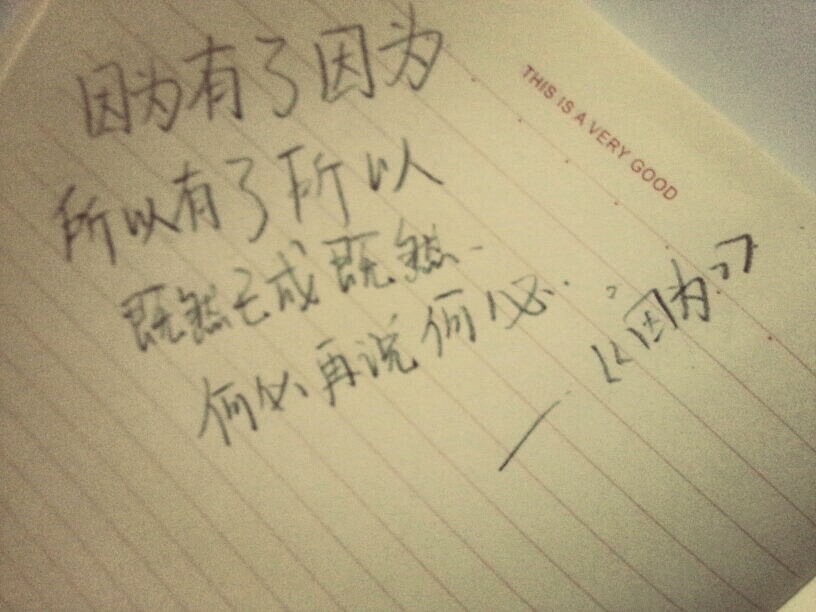 因为有了因为
所以有了所以
既然已成既然、
何必再说何必.。
—《因为》
THIS IS A VERY GOOD